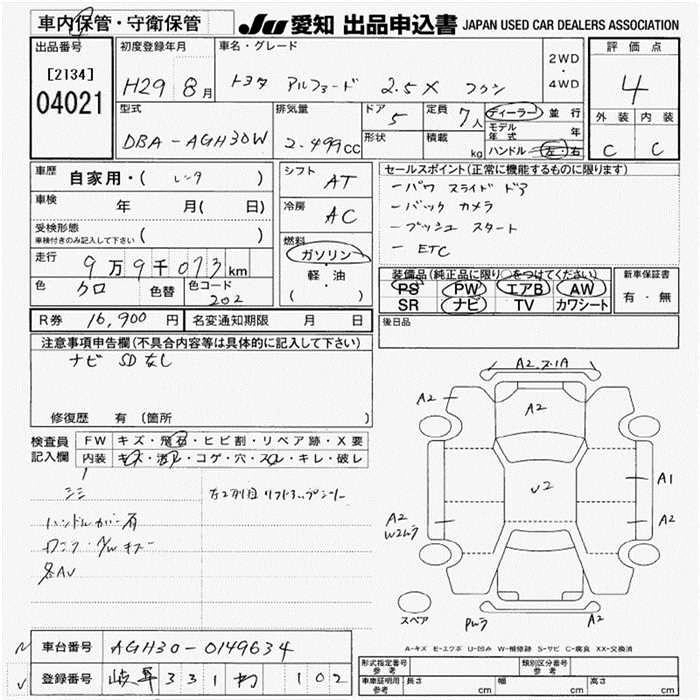 車内保管・守衛保管
JU 愛知 出品申込書 JAPAN USED CAR DEALERS ASSOCIATION
出品番号
[2134]
04021
初度登録年月
H29 8月
車名・グレード
トヨタ アルファード 2.5X
2WD
・
4WD
評価点
4
外装 内装
C C
型式
DBA-AGH30W
排気量
2.499cc
ドア
5
形状
定員
7人
積載
kg
ディーラー 並行
モデル年式 年
ハンドル 左・右
車歴
自家用・( レンタ )
車検
年 月( 日)
受検形態
車検付きのみ記入して下さい ( )
走行
9万9千073km
色
クロ
色替
色コード
202
シフト
AT
冷房
AC
燃料
ガソリン・
軽・油
( )
セールスポイント(正常に機能するものに限ります)
ーパワ スライド ドア
ーバック カメラ
ープッシュ スタート
ーETC
装備品(純正品に限り○をつけてください)
PS PW エアB AW
SR ナビ TV カワシート
新車保証書
有・無
R券 16,900円 名変通知期限 月 日
後日品
注意事項申告欄(不具合内容等は具体的に記入して下さい)
ナビ SDなし
修復歴 有(箇所
検査員
記入欄
FW キズ・飛石・ヒビ割・リペア跡・X要
内装 キズ・汚れ・コゲ・穴・スレ・キレ・破レ
A2
A2
A2
A1
A2
A2
スペア
A-キズ E-エクボ U-凹み W-補修跡 S-サビ C-腐食 XX-交換済
車台番号
AGH30-0149634
登録番号
岐阜 331 102
形式指定番号
参考
類別区分番号
参考
車庫証明用
参考
長さ cm 幅 cm 高さ cm